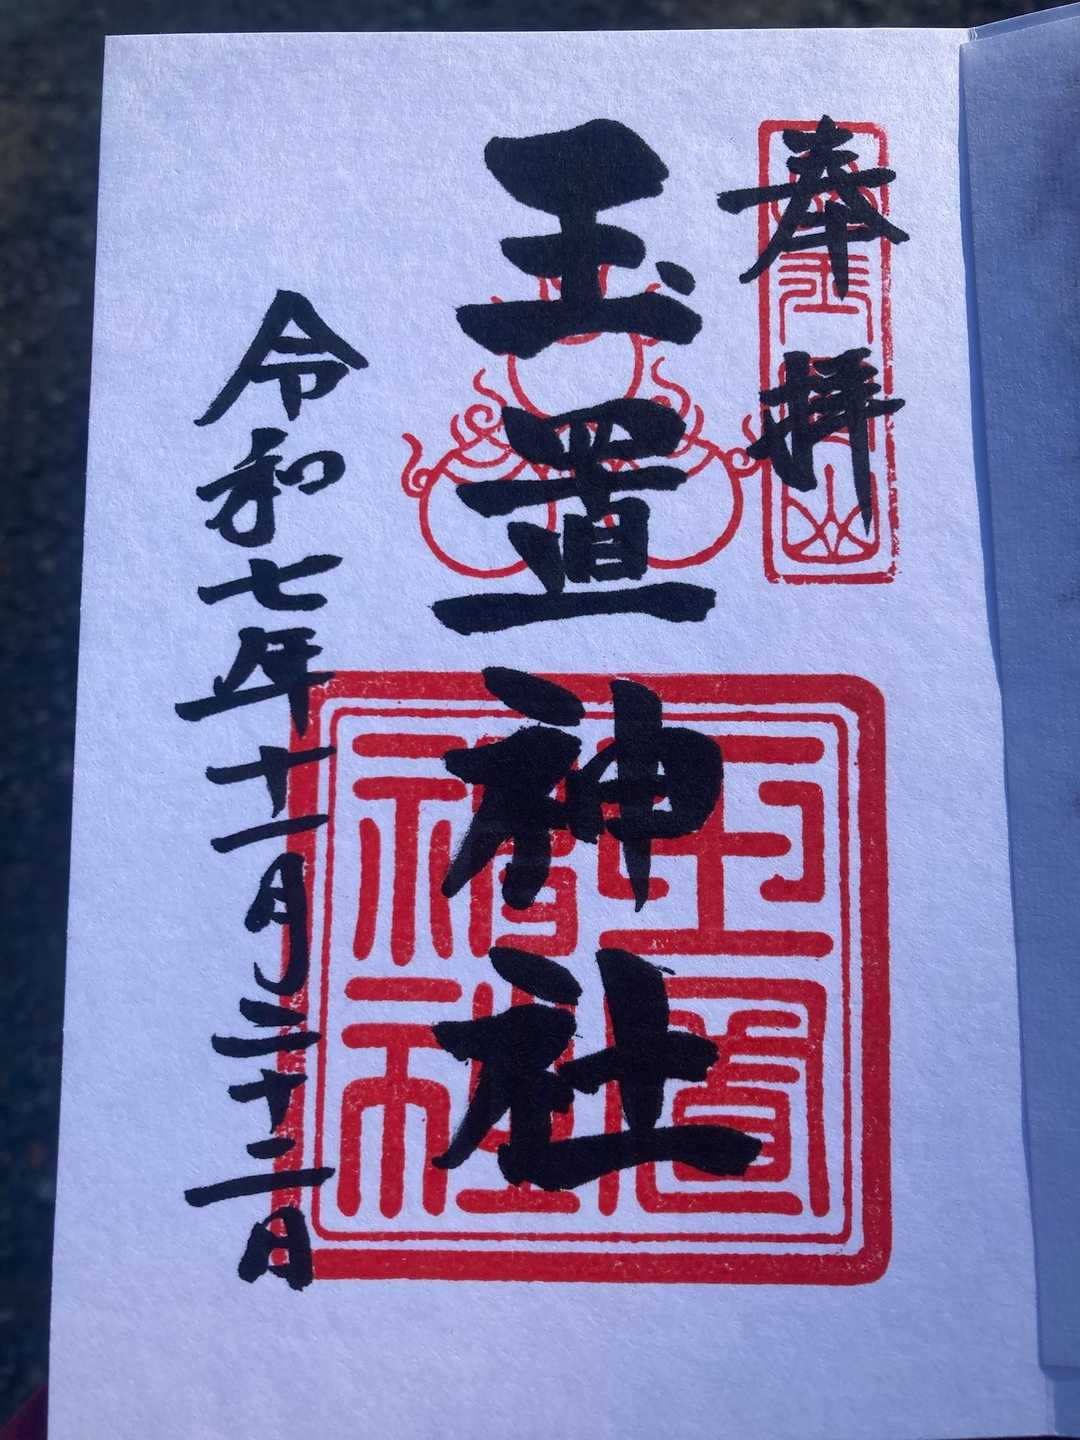 奉拝
玉置神社
令和七年十一月二十二日
玉置神社